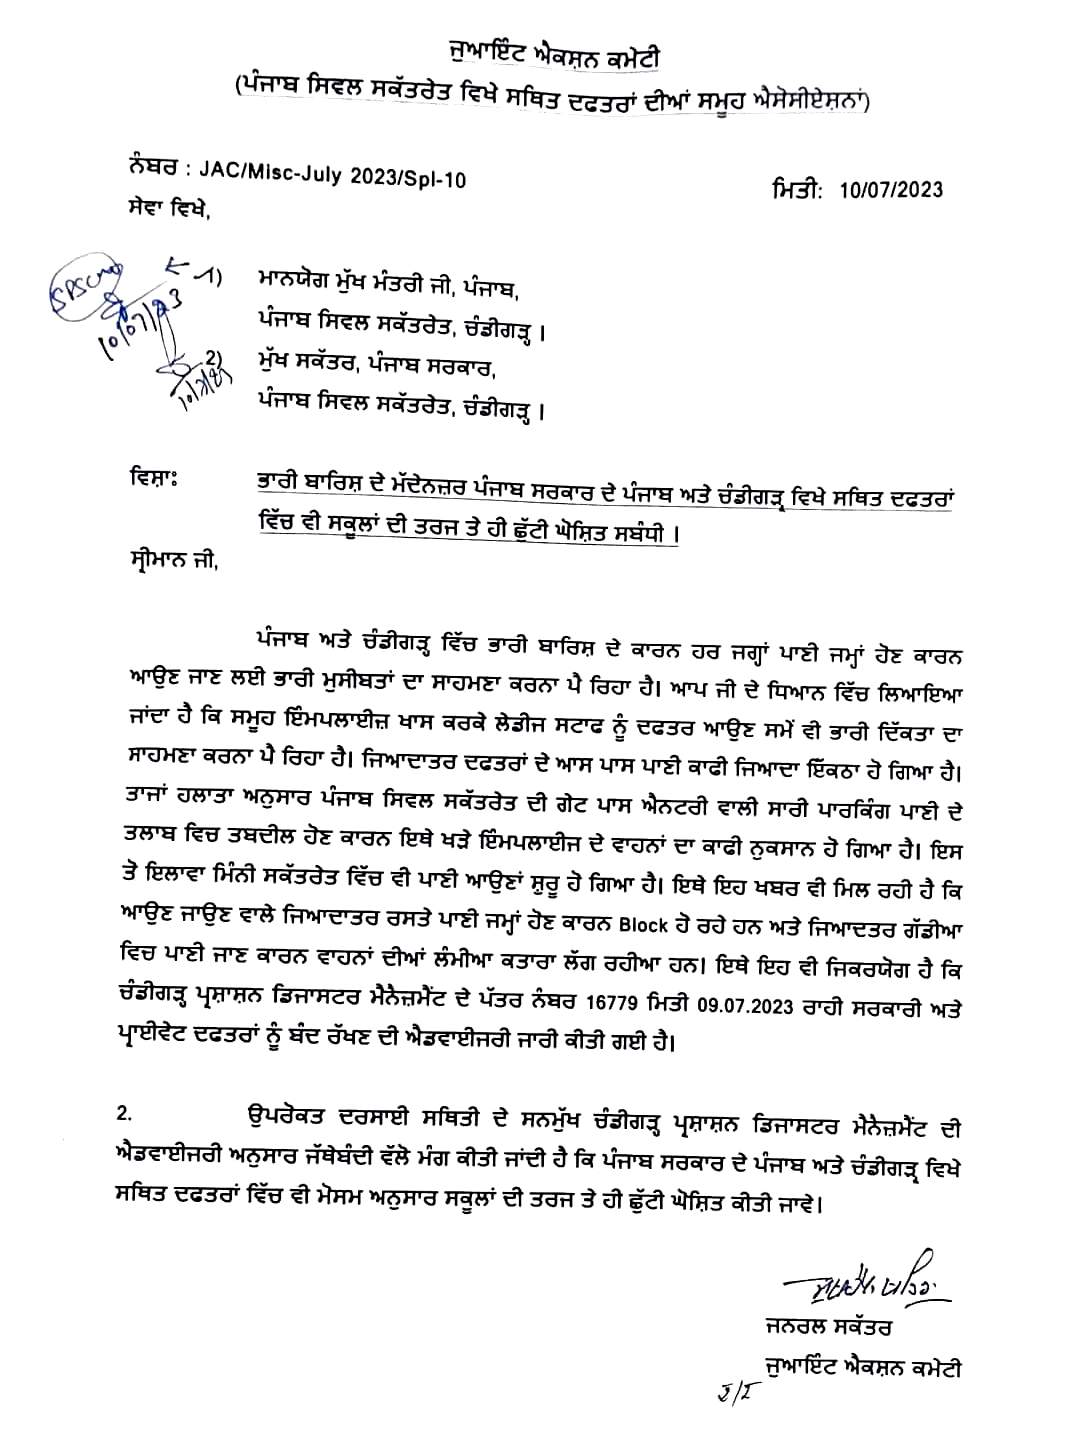 ਜੁਆਇੰਟ ਐਕਸ਼ਨ ਕਮੇਟੀ
(ਪੰਜਾਬ ਸਿਵਲ ਸਕੱਤਰੇਤ ਵਿਖੇ ਸਥਿਤ ਦਫਤਰਾਂ ਦੀਆਂ ਸਮੂਹ ਐਸੋਸੀਏਸ਼ਨਾਂ)
ਨੰਬਰ : JAC/Misc-July 2023/Spl-10
ਮਿਤੀ: 10/07/2023
ਸੇਵਾ ਵਿਖੇ,
1) ਮਾਨਯੋਗ ਮੁੱਖ ਮੰਤਰੀ ਜੀ, ਪੰਜਾਬ,
10/07/23
ਪੰਜਾਬ ਸਿਵਲ ਸਕੱਤਰੇਤ, ਚੰਡੀਗੜ੍ਹ ।
2) ਮੁੱਖ ਸਕੱਤਰ, ਪੰਜਾਬ ਸਰਕਾਰ,
ਪੰਜਾਬ ਸਿਵਲ ਸਕੱਤਰੇਤ, ਚੰਡੀਗੜ੍ਹ ।
ਵਿਸ਼ਾਃ ਭਾਰੀ ਬਾਰਿਸ਼ ਦੇ ਮੱਦੇਨਜ਼ਰ ਪੰਜਾਬ ਸਰਕਾਰ ਦੇ ਪੰਜਾਬ ਅਤੇ ਚੰਡੀਗੜ੍ਹ ਵਿਖੇ ਸਥਿਤ ਦਫਤਰਾਂ
ਵਿੱਚ ਵੀ ਸਕੂਲਾਂ ਦੀ ਤਰਜ ਤੇ ਹੀ ਛੁੱਟੀ ਘੋਸ਼ਿਤ ਸਬੰਧੀ ।
ਸ੍ਰੀਮਾਨ ਜੀ,
ਪੰਜਾਬ ਅਤੇ ਚੰਡੀਗੜ੍ਹ ਵਿੱਚ ਭਾਰੀ ਬਾਰਿਸ਼ ਦੇ ਕਾਰਨ ਹਰ ਜਗ੍ਹਾਂ ਪਾਣੀ ਜਮ੍ਹਾਂ ਹੋਣ ਕਾਰਨ
ਆਉਣ ਜਾਣ ਲਈ ਭਾਰੀ ਮੁਸੀਬਤਾਂ ਦਾ ਸਾਹਮਣਾ ਕਰਨਾ ਪੈ ਰਿਹਾ ਹੈ। ਆਪ ਜੀ ਦੇ ਧਿਆਨ ਵਿੱਚ ਲਿਆਇਆ
ਜਾਂਦਾ ਹੈ ਕਿ ਸਮੂਹ ਇੰਮਪਲਾਈਜ਼ ਖਾਸ ਕਰਕੇ ਲੇਡੀਜ ਸਟਾਫ ਨੂੰ ਦਫਤਰ ਆਉਣ ਸਮੇਂ ਵੀ ਭਾਰੀ ਦਿੱਕਤਾ ਦਾ
ਸਾਹਮਣਾ ਕਰਨਾ ਪੈ ਰਿਹਾ ਹੈ। ਜਿਆਦਾਤਰ ਦਫਤਰਾਂ ਦੇ ਆਸ ਪਾਸ ਪਾਣੀ ਕਾਫੀ ਜਿਆਦਾ ਇੱਕਠਾ ਹੋ ਗਿਆ ਹੈ।
ਤਾਜਾਂ ਹਲਾਤਾ ਅਨੁਸਾਰ ਪੰਜਾਬ ਸਿਵਲ ਸਕੱਤਰੇਤ ਦੀ ਗੇਟ ਪਾਸ ਐਨਟਰੀ ਵਾਲੀ ਸਾਰੀ ਪਾਰਕਿੰਗ ਪਾਣੀ ਦੇ
ਤਲਾਬ ਵਿਚ ਤਬਦੀਲ ਹੋਣ ਕਾਰਨ ਇਥੇ ਖੜੇ ਇੰਮਪਲਾਈਜ ਦੇ ਵਾਹਨਾਂ ਦਾ ਕਾਫੀ ਨੁਕਸਾਨ ਹੋ ਗਿਆ ਹੈ। ਇਸ
ਤੋ ਇਲਾਵਾ ਮਿੰਨੀ ਸਕੱਤਰੇਤ ਵਿੱਚ ਵੀ ਪਾਣੀ ਆਉਣਾਂ ਸ਼ੁਰੂ ਹੋ ਗਿਆ ਹੈ। ਇਥੇ ਇਹ ਖਬਰ ਵੀ ਮਿਲ ਰਹੀ ਹੈ ਕਿ
ਆਉਣ ਜਾਉਣ ਵਾਲੇ ਜਿਆਦਾਤਰ ਰਸਤੇ ਪਾਣੀ ਜਮ੍ਹਾਂ ਹੋਣ ਕਾਰਨ Block ਹੋ ਰਹੇ ਹਨ ਅਤੇ ਜਿਆਦਤਰ ਗੱਡੀਆ
ਵਿਚ ਪਾਣੀ ਜਾਣ ਕਾਰਨ ਵਾਹਨਾਂ ਦੀਆਂ ਲੰਮੀਆ ਕਤਾਰਾ ਲੱਗ ਰਹੀਆ ਹਨ। ਇਥੇ ਇਹ ਵੀ ਜਿਕਰਯੋਗ ਹੈ ਕਿ
ਚੰਡੀਗੜ੍ਹ ਪ੍ਰਸ਼ਾਸ਼ਨ ਡਿਜਾਸਟਰ ਮੈਨੇਜ਼ਮੈਂਟ ਦੇ ਪੱਤਰ ਨੰਬਰ 16779 ਮਿਤੀ 09.07.2023 ਰਾਹੀ ਸਰਕਾਰੀ ਅਤੇ
ਪ੍ਰਾਈਵੇਟ ਦਫਤਰਾਂ ਨੂੰ ਬੰਦ ਰੱਖਣ ਦੀ ਐਡਵਾਈਜਰੀ ਜਾਰੀ ਕੀਤੀ ਗਈ ਹੈ।
2. ਉਪਰੋਕਤ ਦਰਸਾਈ ਸਥਿਤੀ ਦੇ ਸਨਮੁੱਖ ਚੰਡੀਗੜ੍ਹ ਪ੍ਰਸ਼ਾਸ਼ਨ ਡਿਜਾਸਟਰ ਮੈਨੇਜ਼ਮੈਂਟ ਦੀ
ਐਡਵਾਈਜਰੀ ਅਨੁਸਾਰ ਜੱਥੇਬੰਦੀ ਵੱਲੋ ਮੰਗ ਕੀਤੀ ਜਾਂਦੀ ਹੈ ਕਿ ਪੰਜਾਬ ਸਰਕਾਰ ਦੇ ਪੰਜਾਬ ਅਤੇ ਚੰਡੀਗੜ੍ਹ ਵਿਖੇ
ਸਥਿਤ ਦਫਤਰਾਂ ਵਿੱਚ ਵੀ ਮੋਸਮ ਅਨੁਸਾਰ ਸਕੂਲਾਂ ਦੀ ਤਰਜ ਤੇ ਹੀ ਛੁੱਟੀ ਘੋਸ਼ਿਤ ਕੀਤੀ ਜਾਵੇ।
ਜਨਰਲ ਸਕੱਤਰ
ਜੁਆਇੰਟ ਐਕਸ਼ਨ ਕਮੇਟੀ